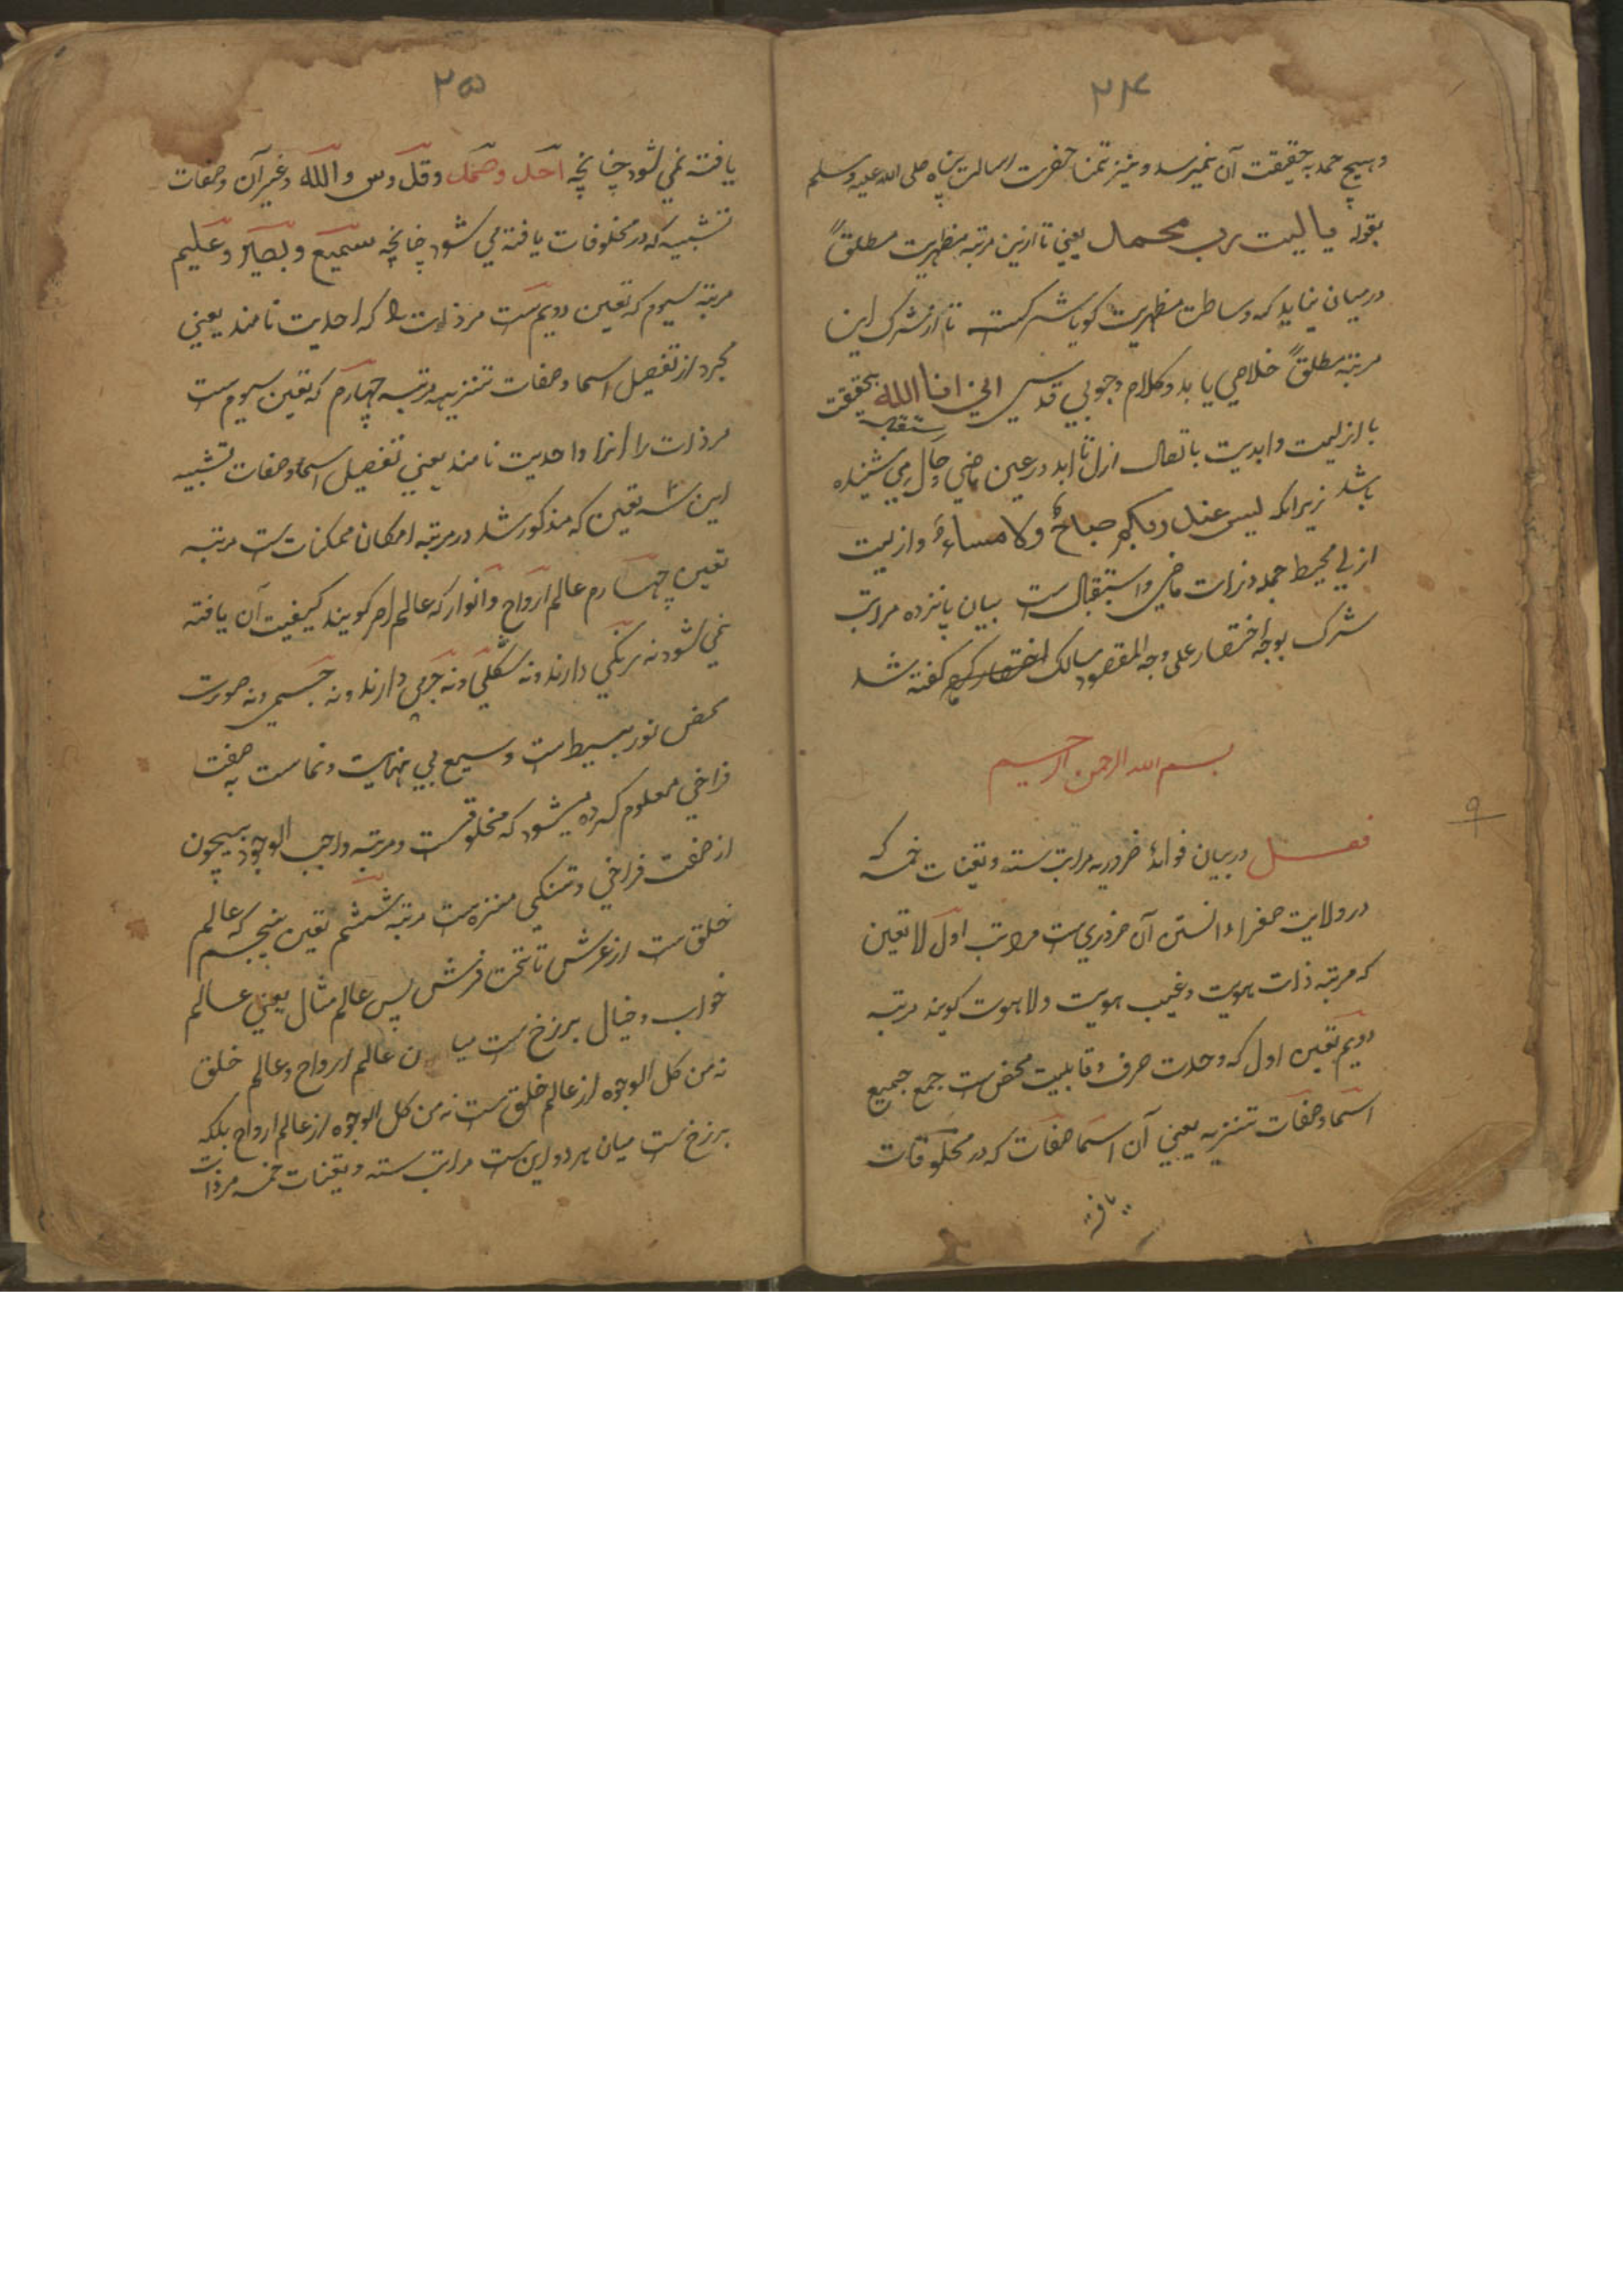 ۲۴
وهیچ حمد به حقیقت آن نمیرسد و نیز تمنا حضرت رسالت پناه صلی الله علیه وسلم
بقوله یا لیت رب محمد یعنی تا ازین مرتبه مظهریت مطلقاً
درمیان نیاید که وساطت مظهریت کویا شرکست تا از شرک این
مرتبه مطلقاً خلاصی یابد و کلام وجوبی قدسی انی انا الله بحقیقت
با ازلیت وابدیت باتصال ازل تا ابد در عین ماضی وحال می شنیده
باشد زیرانکه لیس عند ربکم صباحٌ ولا مساءٌ وازلیت
ازلی محیط جمله ذرات ماضی واستقبال است بیان پانزده مراتب
شرک بوجه اختصار علی وجه المقصود سالک کفته شد
بسم الله الرحمن الرحیم
فصل دربیان فوائد ضروریه مراتب سته وتعینات خمسه که
در ولایت صغرا دانستن آن ضروریست مراتب اول لا تعین
که مرتبه ذات هویت وغیب هویت ولاهوت کویند مرتبه
دویم تعین اول که وحدت صرف وقابلیت محض ست جمع جمیع
اسما وصفات تنزیه یعنی آن اسما صفات که در مخلوقات
یافته
۲۵
یافته نمی شود چنانچه احد وصمد وقدوس والله وغیر آن وصفات
تشبیه که در مخلوقات یافته می شود چنانچه سمیع وبصیر وعلیم
مرتبه سیوم که تعین دویم ست مر ذات را که احدیت نامند یعنی
مجرد از تفصیل اسما وصفات تنزیه مرتبه چهارم که تعین سیوم ست
مر ذات را انرا واحدیت نامند یعنی تفصیل اسما وصفات تشبیه
این سه تعین که مذکور شد در مرتبه امکان ممکنات ست مرتبه
تعین چهارم عالم ارواح وانوار که عالم امر کویند کیفیت آن یافته
نمی شود نه رنکی دارند ونه شکلی ونه جرمی دارند ونه جسمی ونه صورت
محض نور بسیط ست وسیع بی نهایت ونماست به صفت
فراخی معلوم کرده میشود که مخلوقست ومرتبه واجب الوجود بیچون
از صفت فراخی وتنکی منزه ست مرتبه ششم تعین پنجم که عالم
خلق ست از عرش تا تخت فرش پس عالم مثال یعنی عالم
خواب وخیال برزخ ست میان عالم ارواح وعالم خلق
نه من کل الوجوه از عالم خلق ست نه من کل الوجوه از عالم ارواح بلکه
برزخ ست میان هر دو این ست مراتب سته وتعینات خمسه مر ذات